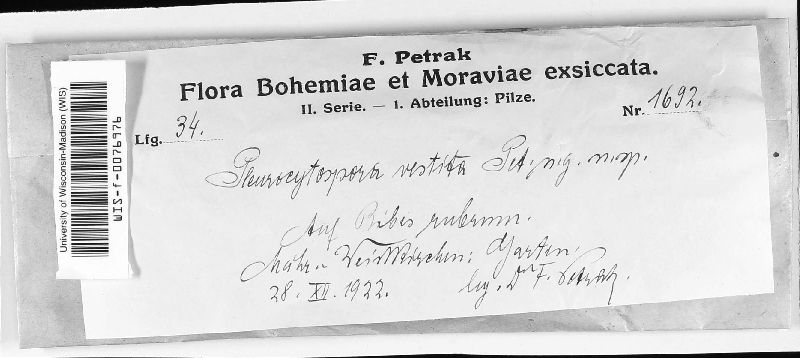 F. Petrak
Flora Bohemiae et Moraviae exsiccata.
II. Serie. — 1. Abteilung: Pilze.
Lfg. 34.
Nr. 1692.
Pleurocytospora vestita Pet. n. g. n. sp.
Auf Ribes rubrum.
Mähr.-Weisskirchen: Garten.
28. XI. 1922. leg. Dr F. Petrak.
University of Wisconsin-Madison (WIS)
WIS-f-0076976